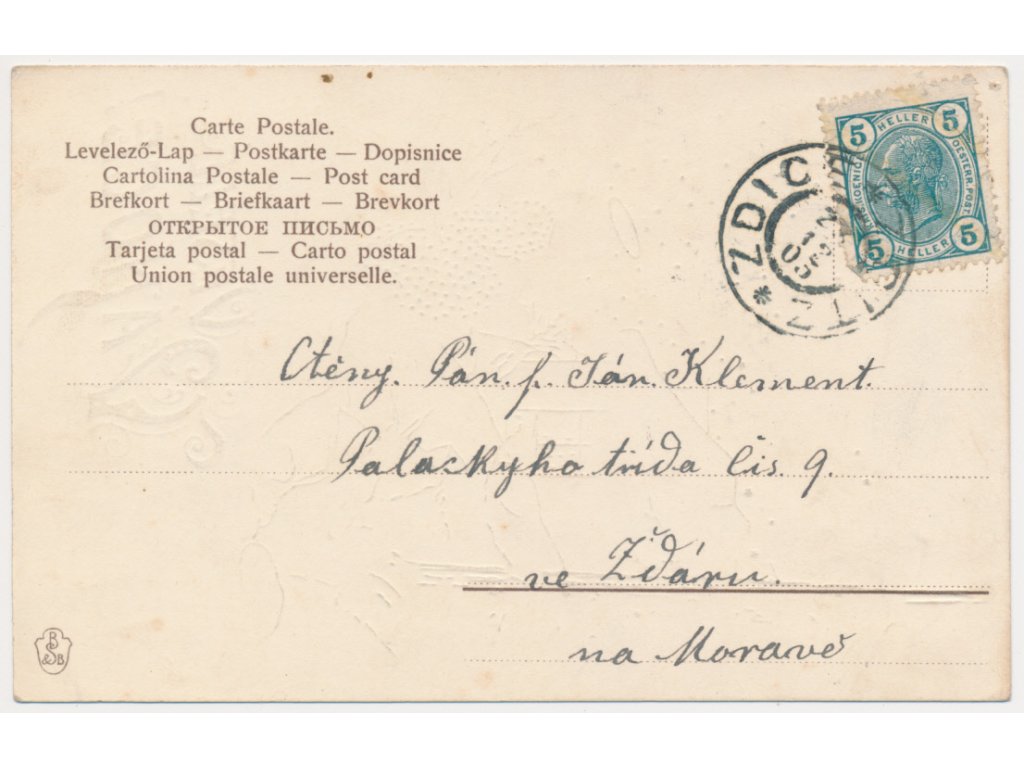 Carte Postale.
Levelező-Lap — Postkarte — Dopisnice
Cartolina Postale — Post card
Brefkort — Briefkaart — Brevkort
ОТКРЫТОЕ ПИСЬМО
Tarjeta postal — Carto postal
Union postale universelle.
5 HELLER 5
KOENIGL. OESTERR. POST
5 HELLER 5
* ZDIC ITZ
05
Ctěny. Pán. p. Ján. Klement.
Palackyho třída čis. 9.
ve Žďáru.
na Moravě
B
S
& B